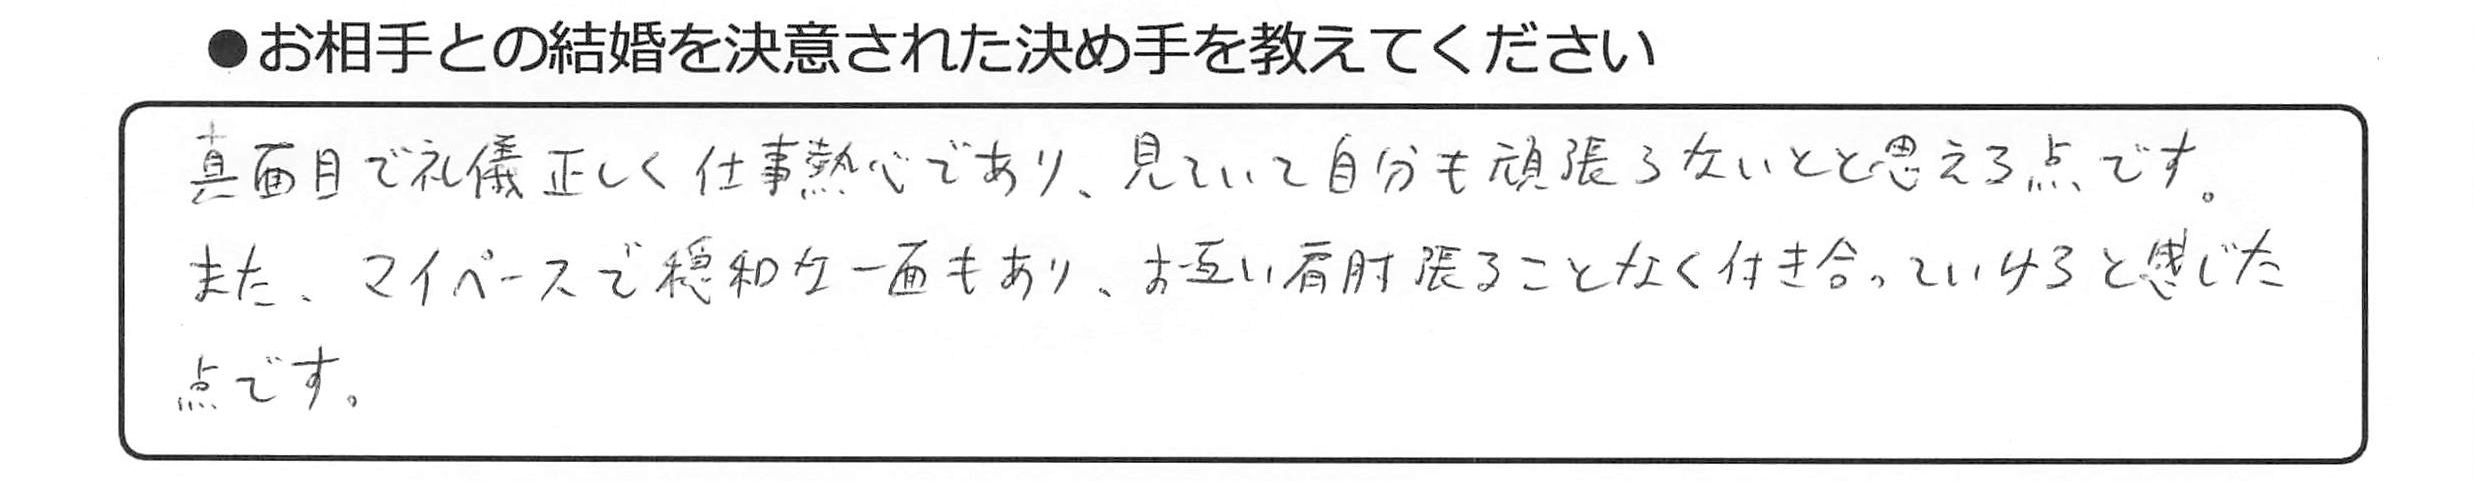 ●お相手との結婚を決意された決め手を教えてください
真面目で礼儀正しく仕事熱心であり、見ていて自分も頑張らないとと思える点です。
また、マイペースで穏和な一面もあり、お互い肩肘張ることなく付き合っていけると感じた
点です。